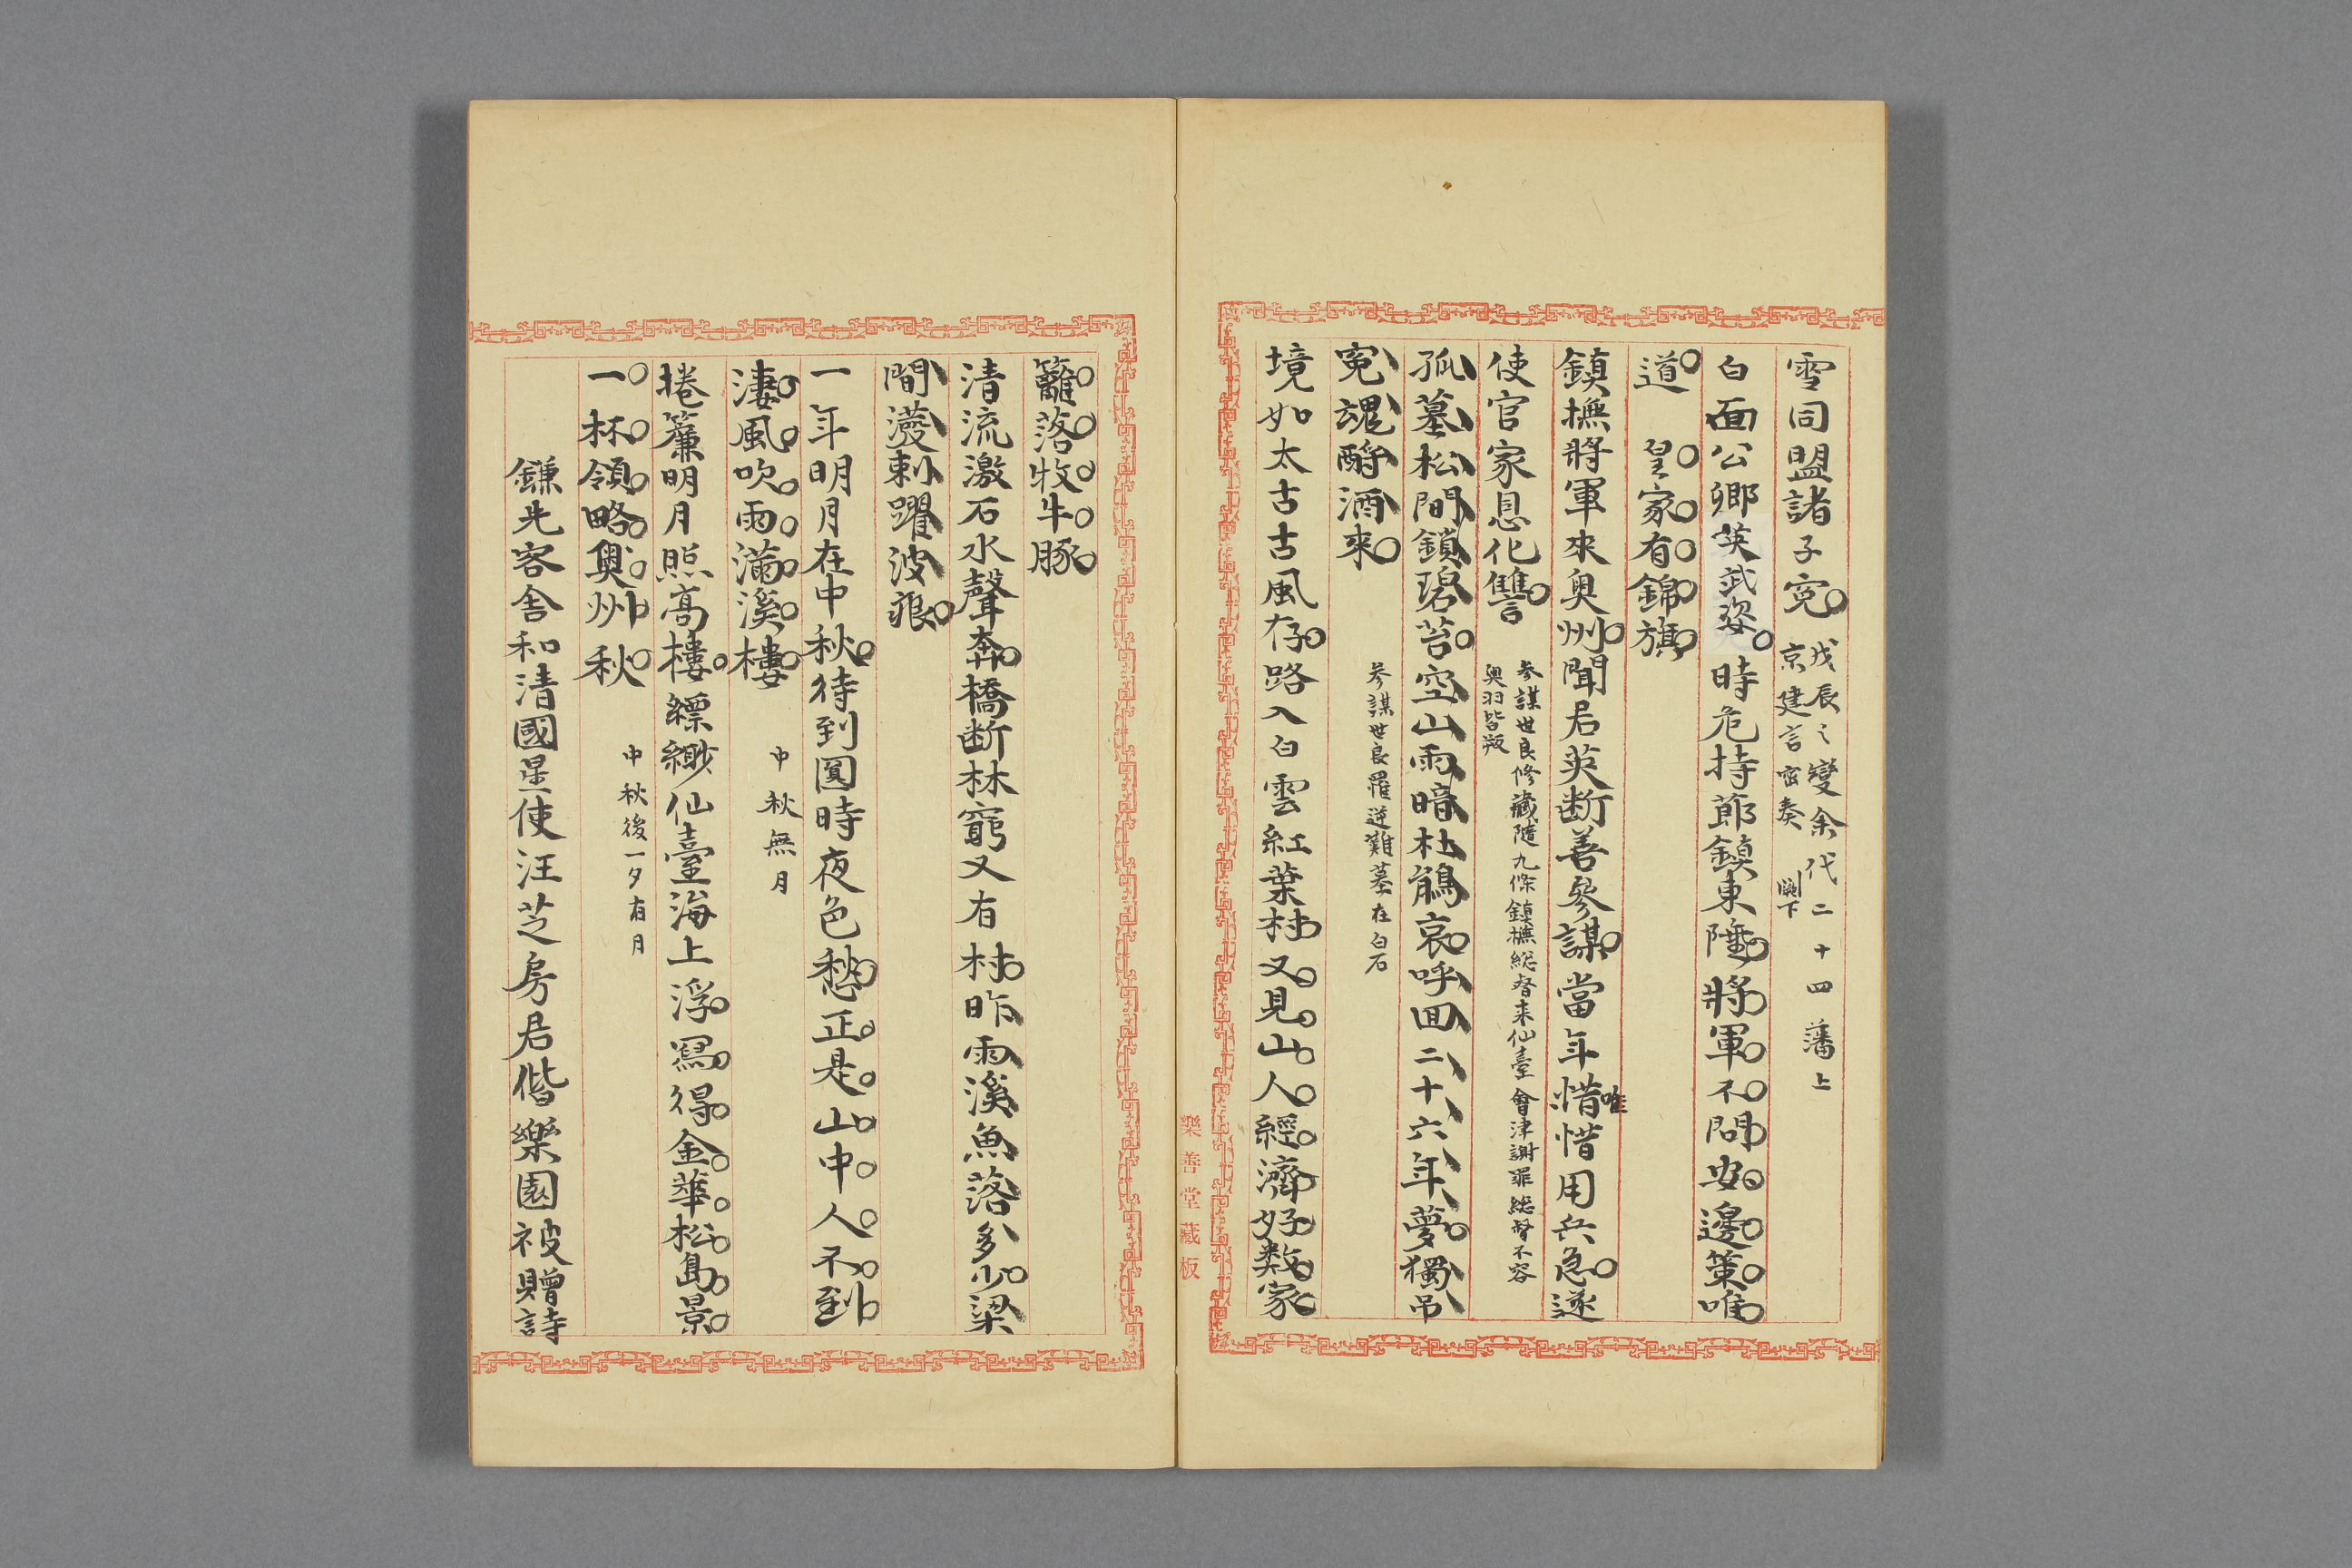 雪同盟諸子寃
戊辰之變余代二十四藩上
京建言密奏　闕下
白面公卿英武姿時危持節鎮東陲將軍不問安邊策唯
道　皇家有錦旗
鎮撫將軍來奥州聞君英断善參謀當年惜惜用兵急遂
唯
使官家恩化讐
参謀世良修藏隨九條鎮撫総督来仙臺會津謝罪総督不容
奥羽皆叛
孤墓松間鎖碧苔空山雨暗杜鵑哀呼回二十六年夢獨吊
寃魂酹酒來
参謀世良罹逆難墓在白石
境如太古古風存路入白雲紅葉村又見山人經濟好数家
籬落牧牛豚
清流激石水聲奔橋断林窮又有村昨雨溪魚落多少梁
間潑剌躍波痕
一年明月在中秋待到圓時夜色愁正是山中人不到
淒風吹雨滿溪樓
中秋無月
捲簾明月照高樓縹緲仙臺海上浮寫得金華松島景
一杯領略奥州秋
中秋後一夕有月
鎌先客舎和清國星使汪芝房君偕樂園被贈詩
樂善堂藏板